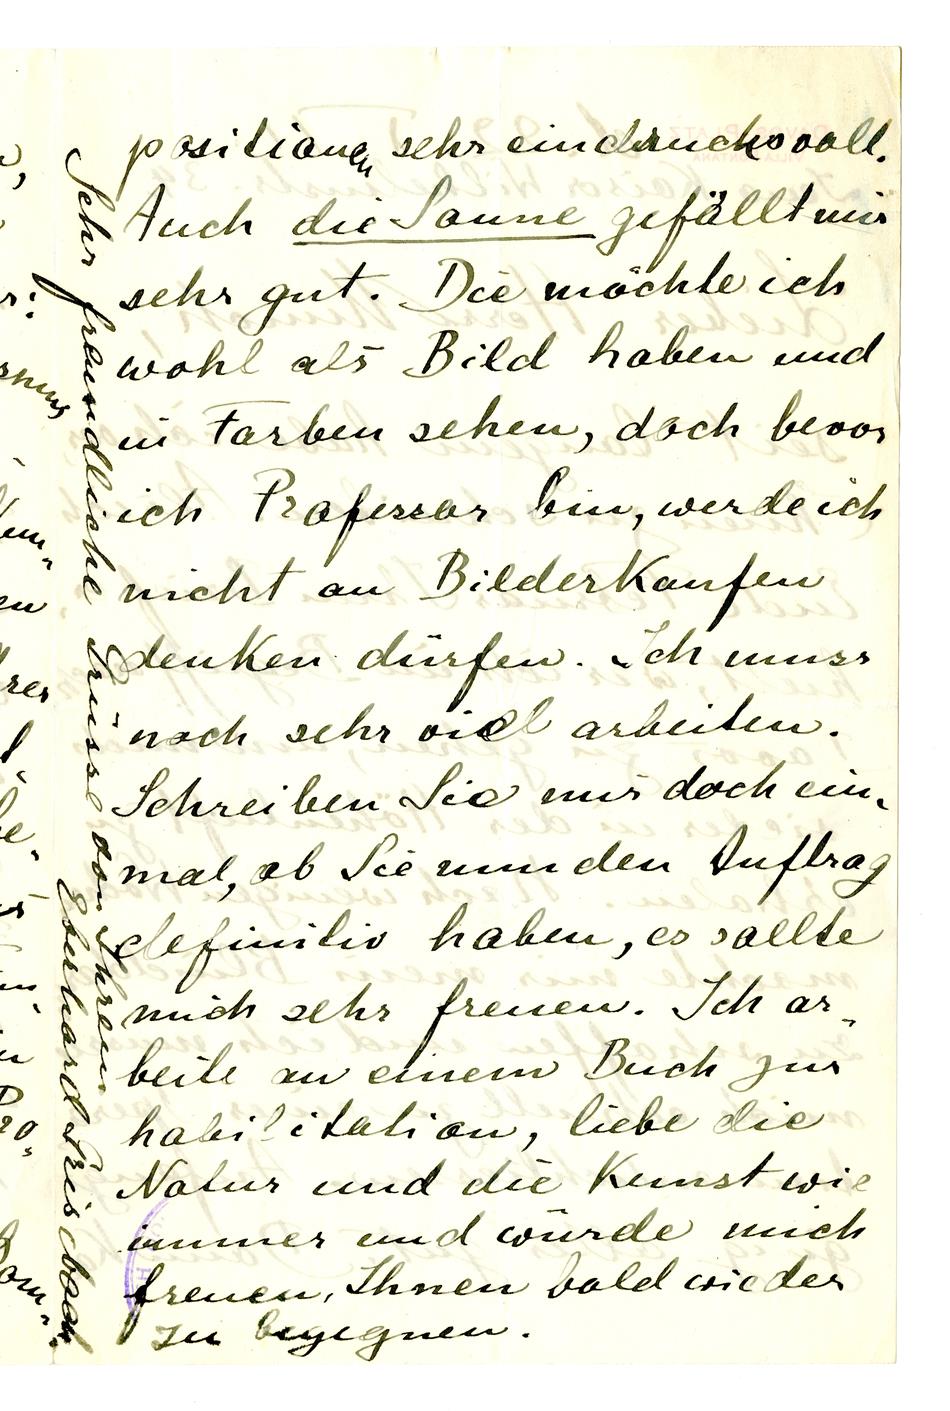 positionen sehr eindrucksvoll.
Auch die Sonne gefällt mir
sehr gut. Die möchte ich
wohl als Bild haben und
in Farben sehen, doch bevor
ich Professor bin, werde ich
nicht an Bilderkaufen
denken dürfen. Ich muss
noch sehr viel arbeiten.
Schreiben Sie mir doch ein-
mal, ob Sie nun den Auftrag
definitiv haben, es sollte
mich sehr freuen. Ich ar-
beite an einem Buch zur
habilitation, liebe die
Natur und die Kunst wie
immer und würde mich
freuen, Ihnen bald wieder
zu begegnen.
Sehr freundliche Grüsse von Ihrem
Eberhard Grisebach